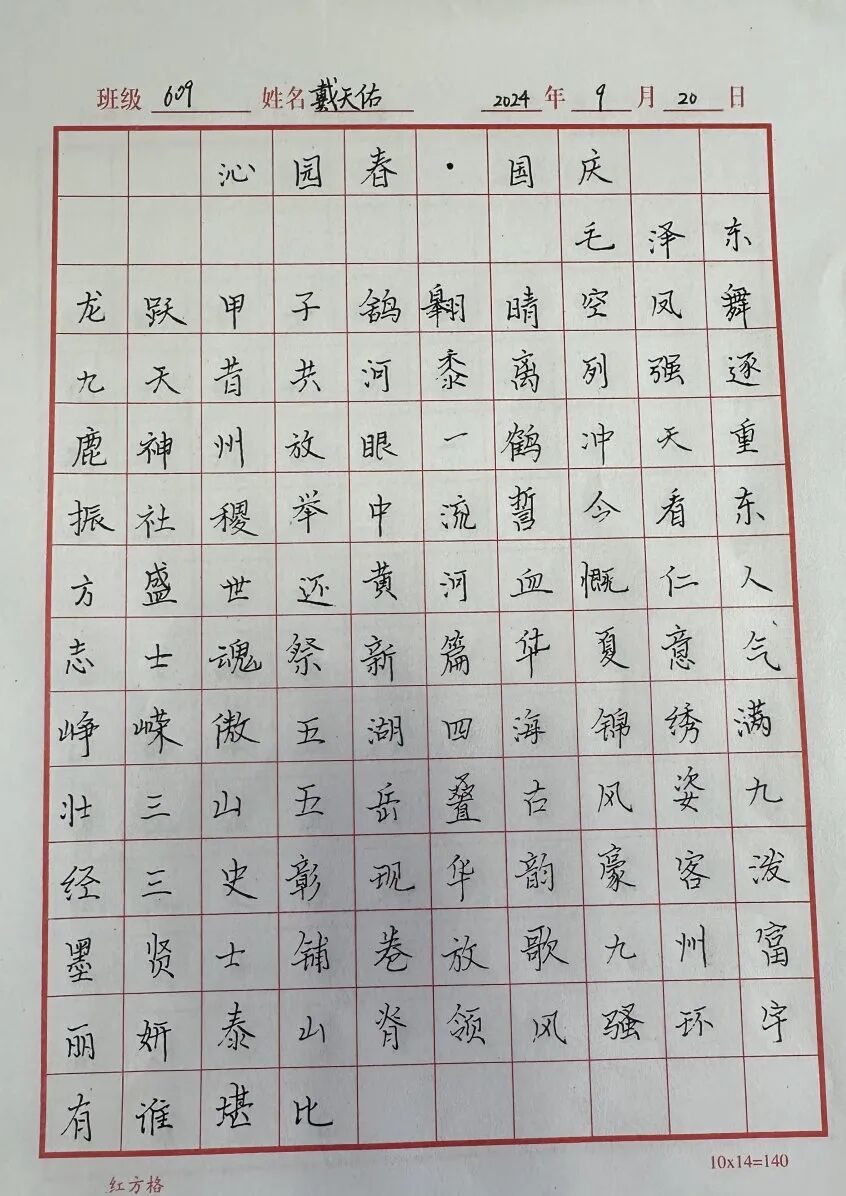 班级 609 姓名 戴天佑 2024 年 9 月 20 日
沁园春·国庆
毛泽东
龙跃甲子鸽翱晴空凤舞
九天昔共河黍离列强逐
鹿神州放眼一鹤冲天重
振社稷举中流誓今看东
方盛世还黄河血慨仁人
志士魂祭新篇华夏意气
峥嵘傲五湖四海锦绣满
壮三山五岳叠古风姿九
经三史彰现华韵豪客泼
墨贤士铺卷放歌九州富
丽妍泰山脊领风骚环宇
有谁堪比
10x14=140
红方格